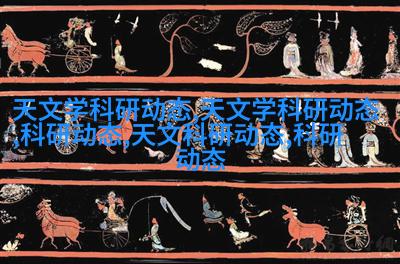 天文学科研动态,天文学科研动态
,科研动态,天文科研动态,科研
动态